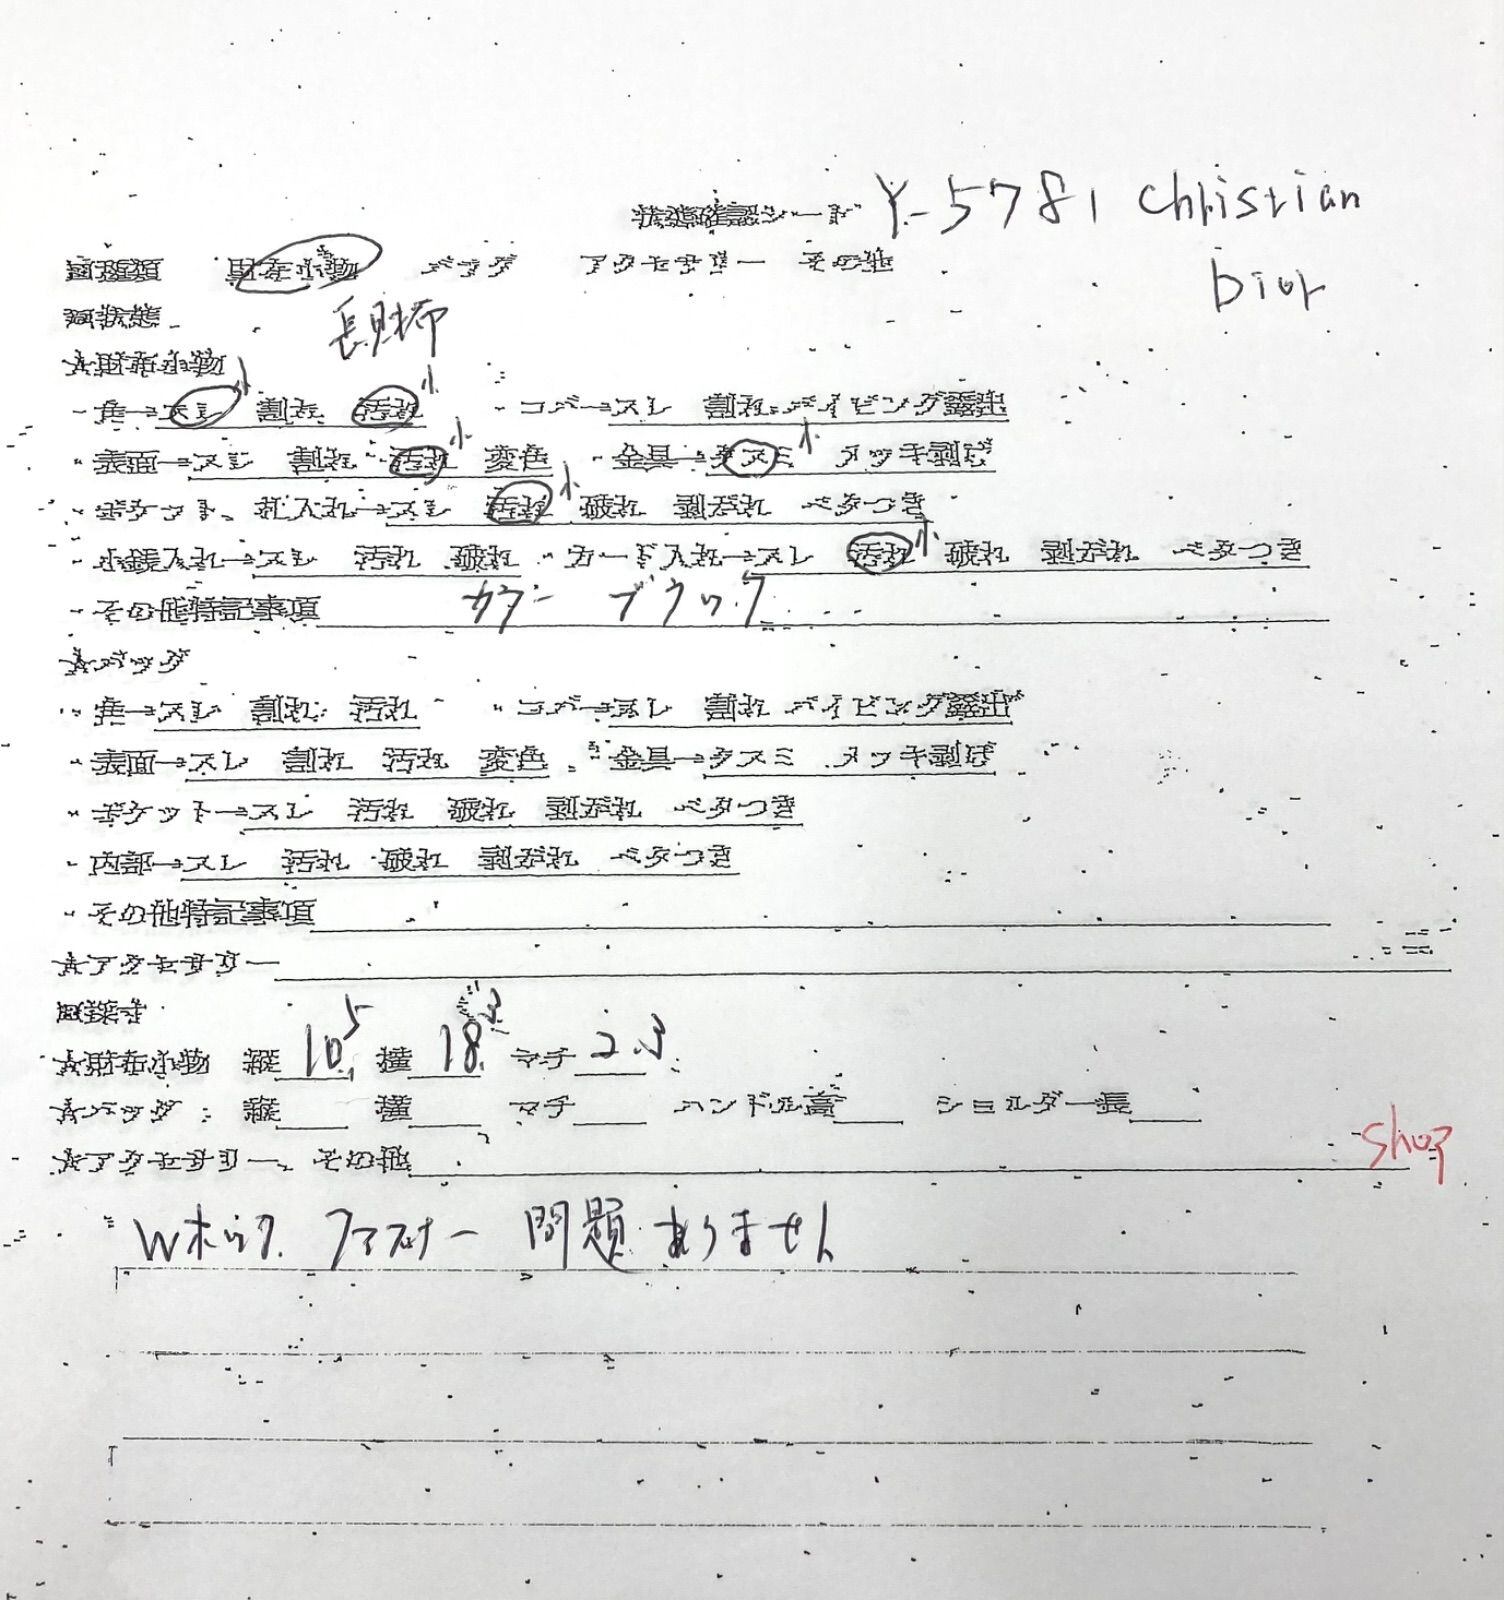 状態確認シート Y-5781 Christian
Dior
□種類 財布小物 バッグ アクセサリー その他
□状態
長財布
☆財布小物
・角→スレ小 割れ 汚れ小 ・コバ→スレ 割れ パイピング露出
・表面→スレ 割れ 汚れ小 変色 ・金具→クスミ小 メッキ剥げ
・ポケット、札入れ→スレ 汚れ小 破れ 剥がれ ベタつき
・小銭入れ→スレ 汚れ 破れ ・カード入れ→スレ 汚れ小 破れ 剥がれ ベタつき
・その他特記事項 カラー ブラック
☆バッグ
・角→スレ 割れ 汚れ ・コバ→スレ 割れ パイピング露出
・表面→スレ 割れ 汚れ 変色 ・金具→クスミ メッキ剥げ
・ポケット→スレ 汚れ 破れ 剥がれ ベタつき
・内部→スレ 汚れ 破れ 剥がれ ベタつき
・その他特記事項
☆アクセサリー
□採寸
☆財布小物 縦 10.5 横 18. マチ 2.3
☆バッグ: 縦 横 マチ ハンドル高 ショルダー長
☆アクセサリー、その他
Wホック ファスナー 問題ありません